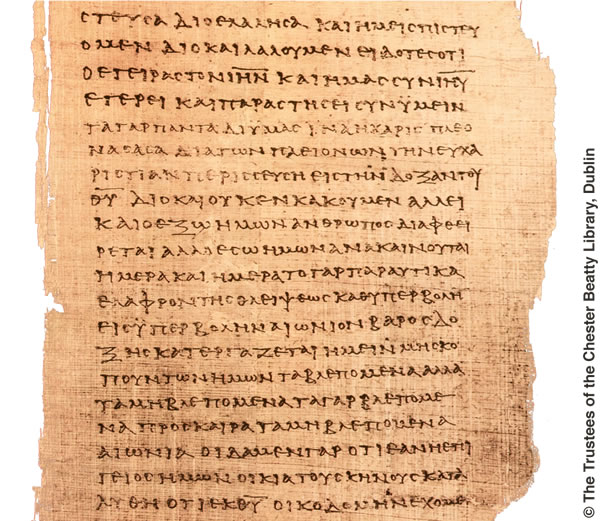 ϹΤΕΥϹΑ ΔΙΟ ΕΛΑΛΗϹΑ ΚΑΙ ΗΜΕΙϹ ΠΙϹΤΕΥ
ΟΜΕΝ ΔΙΟ ΚΑΙ ΛΑΛΟΥΜΕΝ ΕΙΔΟΤΕϹ ΟΤΙ
Ο ΕΓΕΙΡΑϹ ΤΟΝ Ι̅Η̅Ν̅ ΚΑΙ ΗΜΑϹ ϹΥΝ Ι̅Η̅Υ̅
ΕΓΕΡΕΙ ΚΑΙ ΠΑΡΑϹΤΗϹΕΙ ϹΥΝ ΫΜΕΙΝ
ΤΑ ΓΑΡ ΠΑΝΤΑ ΔΙ ΥΜΑϹ ΙΝΑ Η ΧΑΡΙϹ ΠΛΕΟ
ΝΑϹΑϹΑ ΔΙΑ ΤΩΝ ΠΛΕΙΟΝΩΝ ΤΗΝ ΕΥΧΑ
ΡΙϹΤΙΑΝ ΠΕΡΙϹϹΕΥϹΗ ΕΙϹ ΤΗΝ ΔΟΞΑΝ ΤΟΥ
Θ̅Υ̅ ΔΙΟ ΚΑΙ ΟΥΚ ΕΝΚΑΚΟΥΜΕΝ ΑΛΛ ΕΙ
ΚΑΙ Ο ΕΞΩ ΗΜΩΝ ΑΝΘΡΩΠΟϹ ΔΙΑΦΘΕΙ
ΡΕΤΑΙ ΑΛΛ Ο ΕϹΩ ΗΜΩΝ ΑΝΑΚΑΙΝΟΥΤΑΙ
ΗΜΕΡΑ ΚΑΙ ΗΜΕΡΑ ΤΟ ΓΑΡ ΠΑΡΑΥΤΙΚΑ
ΕΛΑΦΡΟΝ ΤΗϹ ΘΛΕΙΨΕΩϹ ΚΑΘ ΥΠΕΡΒΟΛΗ
ΕΙϹ ΥΠΕΡΒΟΛΗΝ ΑΙΩΝΙΟΝ ΒΑΡΟϹ ΔΟ
ΞΗϹ ΚΑΤΕΡΓΑΖΕΤΑΙ ΗΜΕΙΝ ΜΗ ϹΚΟ
ΠΟΥΝΤΩΝ ΗΜΩΝ ΤΑ ΒΛΕΠΟΜΕΝΑ ΑΛΛΑ
ΤΑ ΜΗ ΒΛΕΠΟΜΕΝΑ ΤΑ ΓΑΡ ΒΛΕΠΟΜΕ
ΝΑ ΠΡΟϹΚΑΙΡΑ ΤΑ ΜΗ ΒΛΕΠΟΜΕΝΑ
ΑΙΩΝΙΑ ΟΙΔΑΜΕΝ ΓΑΡ ΟΤΙ ΕΑΝ Η ΕΠΙ
ΓΕΙΟϹ ΗΜΩΝ ΟΙΚΙΑ ΤΟΥ ϹΚΗΝΟΥϹ ΚΑΤΑ
ΛΥΘΗ ΟΤΙ ΕΚ Θ̅Υ̅ ΟΙΚΟΔΟΜΗΝ ΕΧΟΜΕ
© The Trustees of the Chester Beatty Library, Dublin